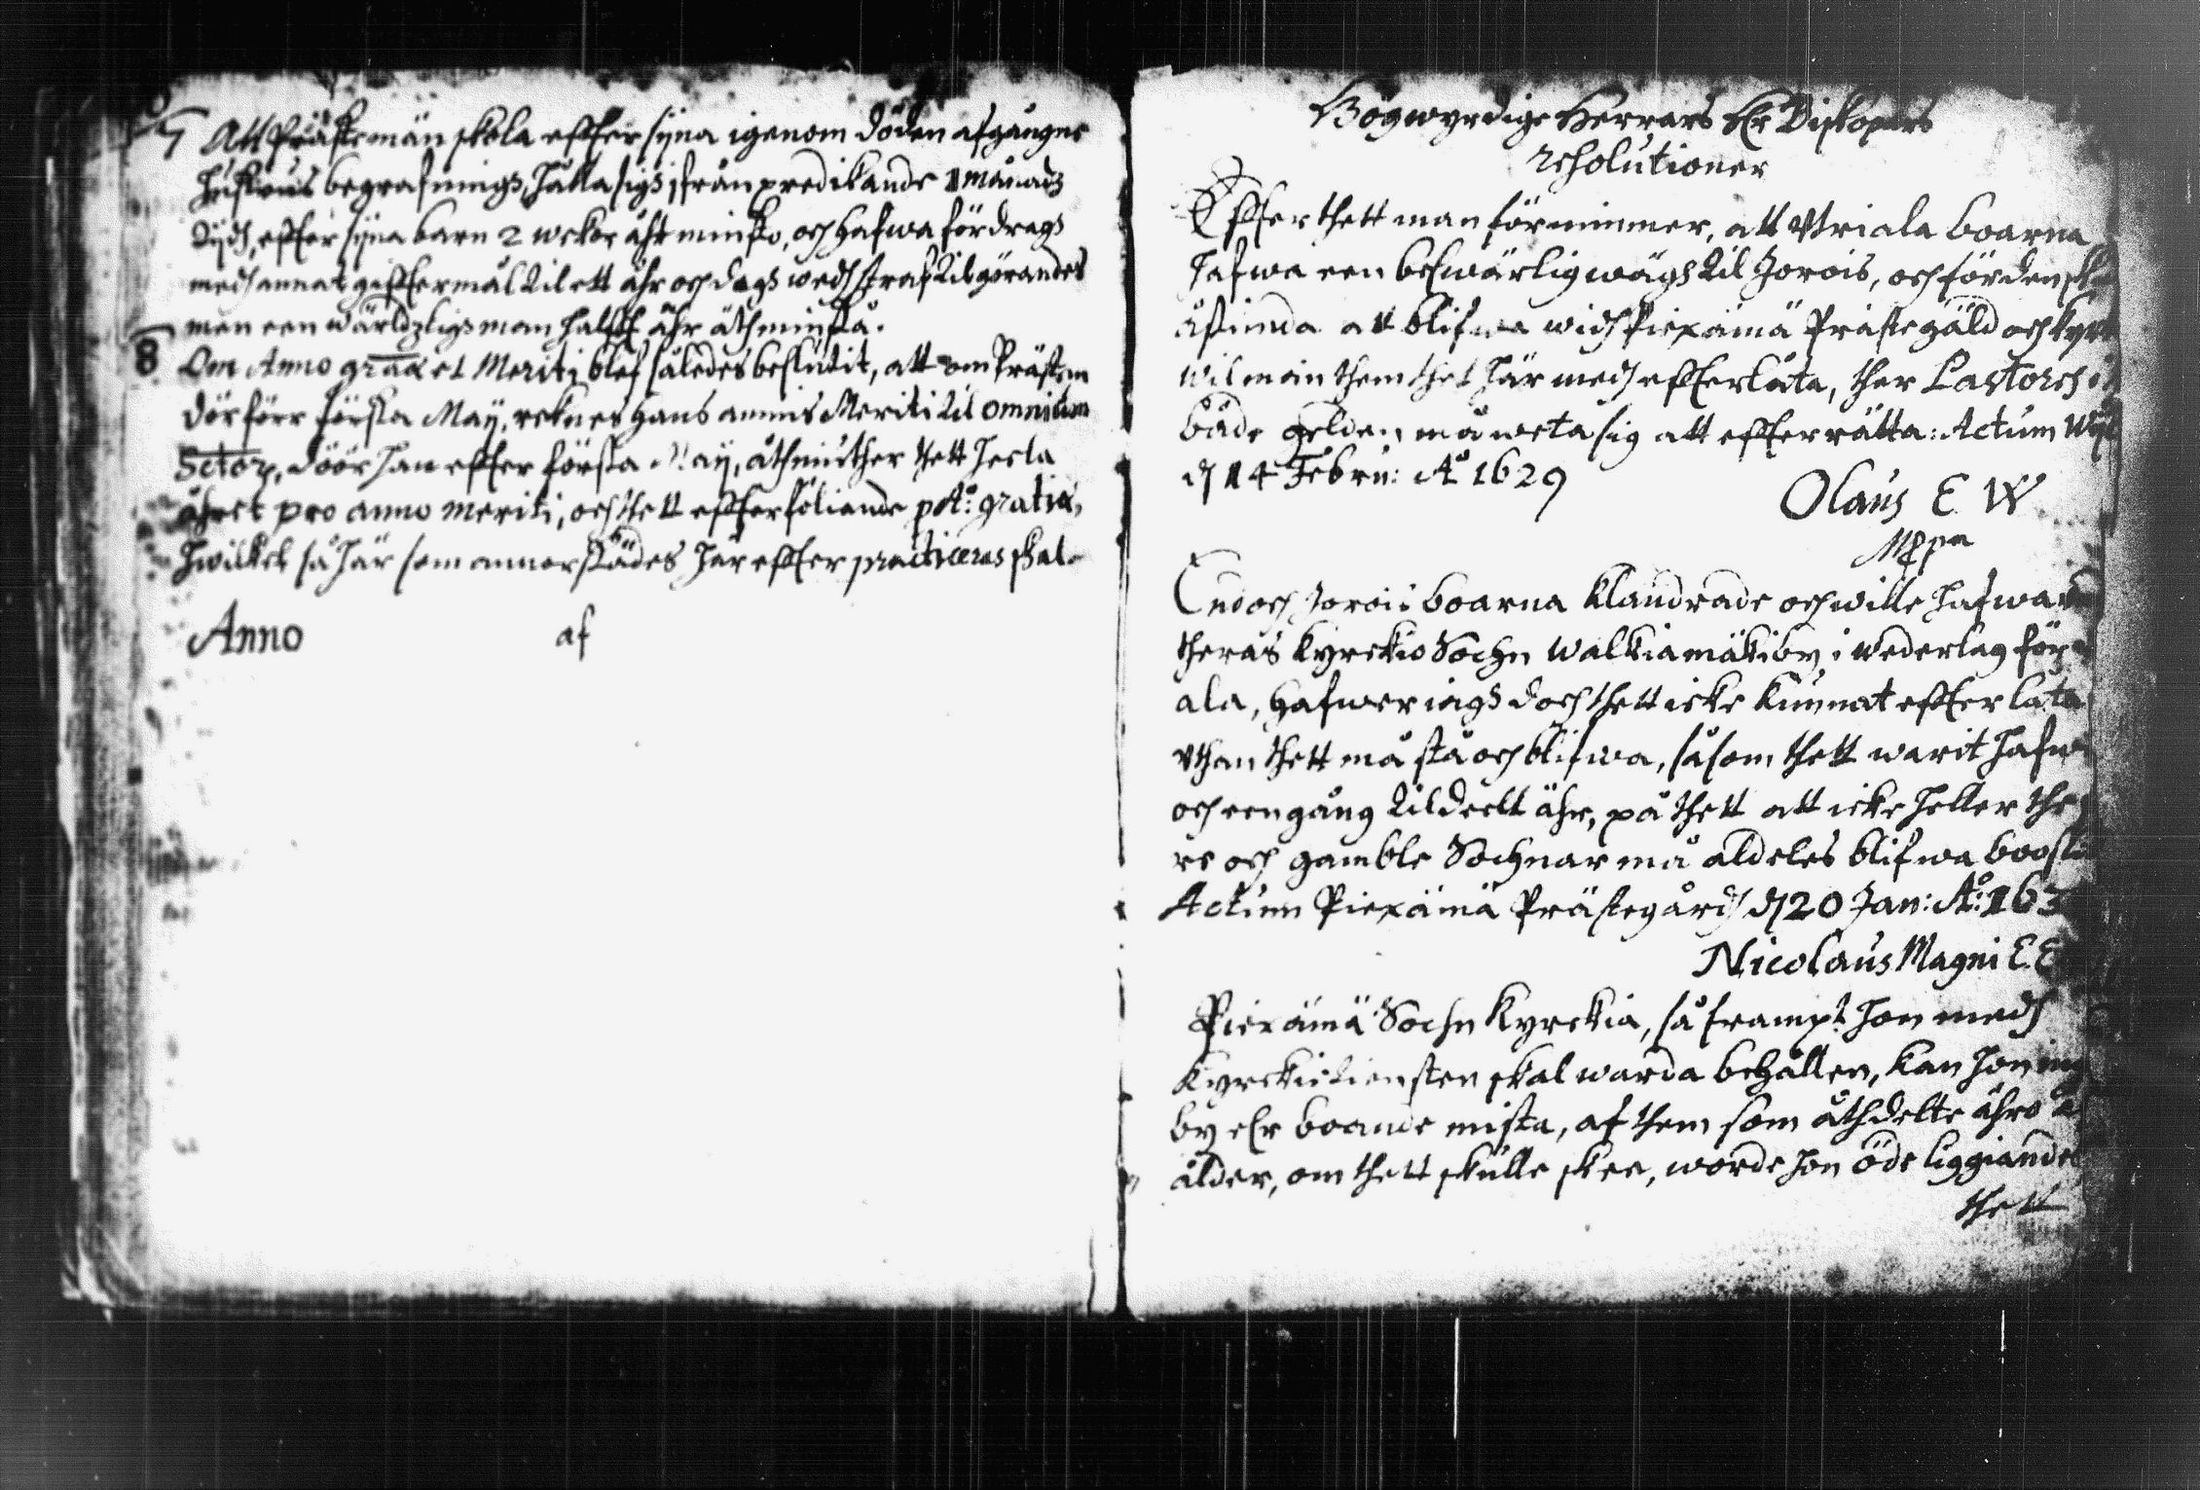 7 Att Prästemän skola effter syna igenom döden afgångne
hustrus begrafnings, hålla sigh ifrån predikande 1 månadz
tijdh, effter syna barn 2 wekor åth minsto, och hafwa fördragh
medh annat gifftermål til ett åhr och dagh wedh straf tilgörandes
men een wärldzligh man halfft åhr åthminsta.
8 Om Anno gratiæ et Meriti blef således beslutit, att om Prästen
dör förr första Maij, reknes hans annus Meriti til omnium
Sctor, döör han effter första Maij, åthniuther thett heela
åhret pro anno meriti, och thett effterföliande p Ao: gratiæ,
hwilket så här som annorstädes här effter practiceras skal.
Anno af
Högwyrdige Herrars Hr Biskopars
resolutioner
Effter thett man förnimmer, att Vtriala boarna
hafwa een beswärlig wägh til Jorois, och förden sk
åstunda att blifwa widh Piexämä Prästegäld och kyr
wil man them thet här medh effterlåta, ther Pastores i
både gelden må weta sig att effterrätta: Actum Wib
d 14 Febru: Ao 1629
Olaus E W
Mppa
Endoch Jorois boarna klandrade och wille hafwa
theras kyrckio Sochn Walkiamäki by i wederlag för
ala, hafwer iagh doch thett icke kunnat effterlåta
vthan thett må stå och blifwa, såsom thett warit hafw
och een gång tildeelt ähr, på thett att icke heller the
re och gamble Sochnar må aldeles blifwa
Actum Piexämä Prästegård d 20 Jan: Ao: 163
Nicolaus Magni E. E
Piexämä Sochn Kyrckia, så frampt hon medh
Kyrckietiensten skal warda behållen, kan hon in
by eller boande mista, af them som åthdelte ähro
ålder, om thett skulle skee, worde hon öde liggiande
thett